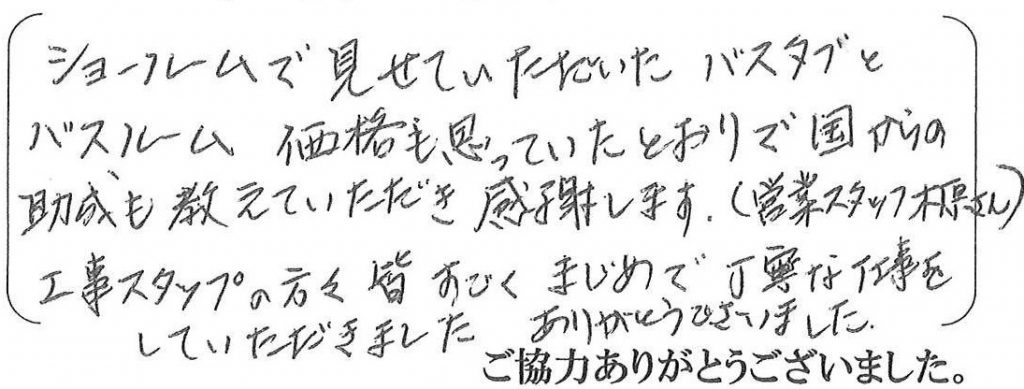 ショールームで見せていただいた バスタブと
バスルーム、価格も思っていたとおりで国からの
助成も教えていただき感謝します。(営業スタッフ 原さん)
工事スタップの方々皆すごくまじめで丁寧な仕事を
していただきました ありがとうございました.
ご協力ありがとうございました。